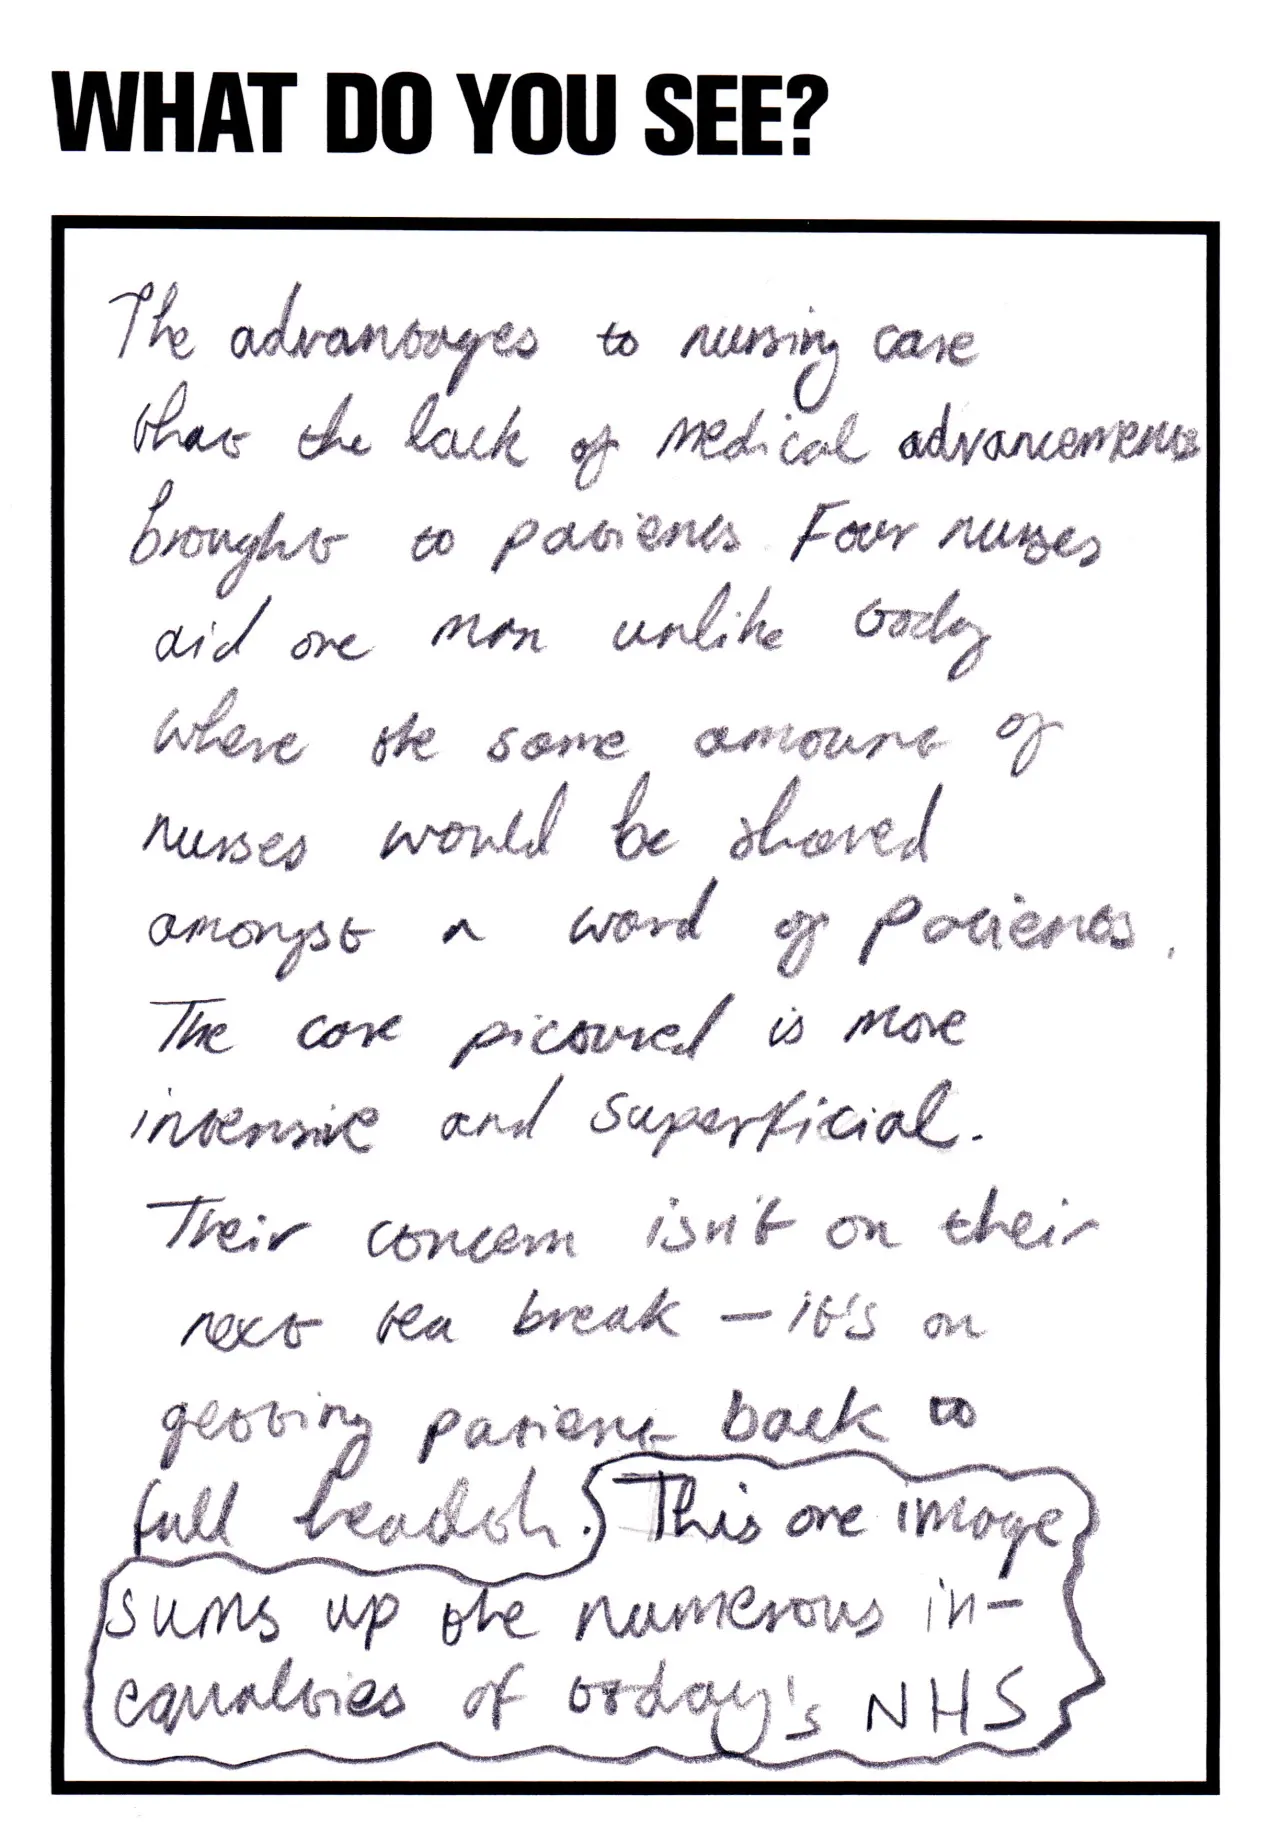 WHAT DO YOU SEE?
The advantages to nursing care
that the lack of medical advancements
brought to patients. Four nurses
aid one man unlike today
where the same amount of
nurses would be shared
amongst a ward of patients.
The care pictured is more
intensive and superficial.
Their concern isn't on their
next tea break – it's on
getting patient back to
full health. This one image
sums up the numerous in-
equalities of today's NHS